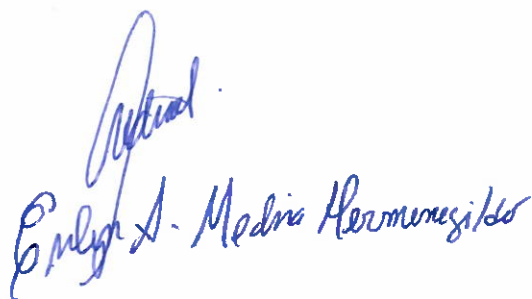 Evelyn A. Medina Hermenegildo